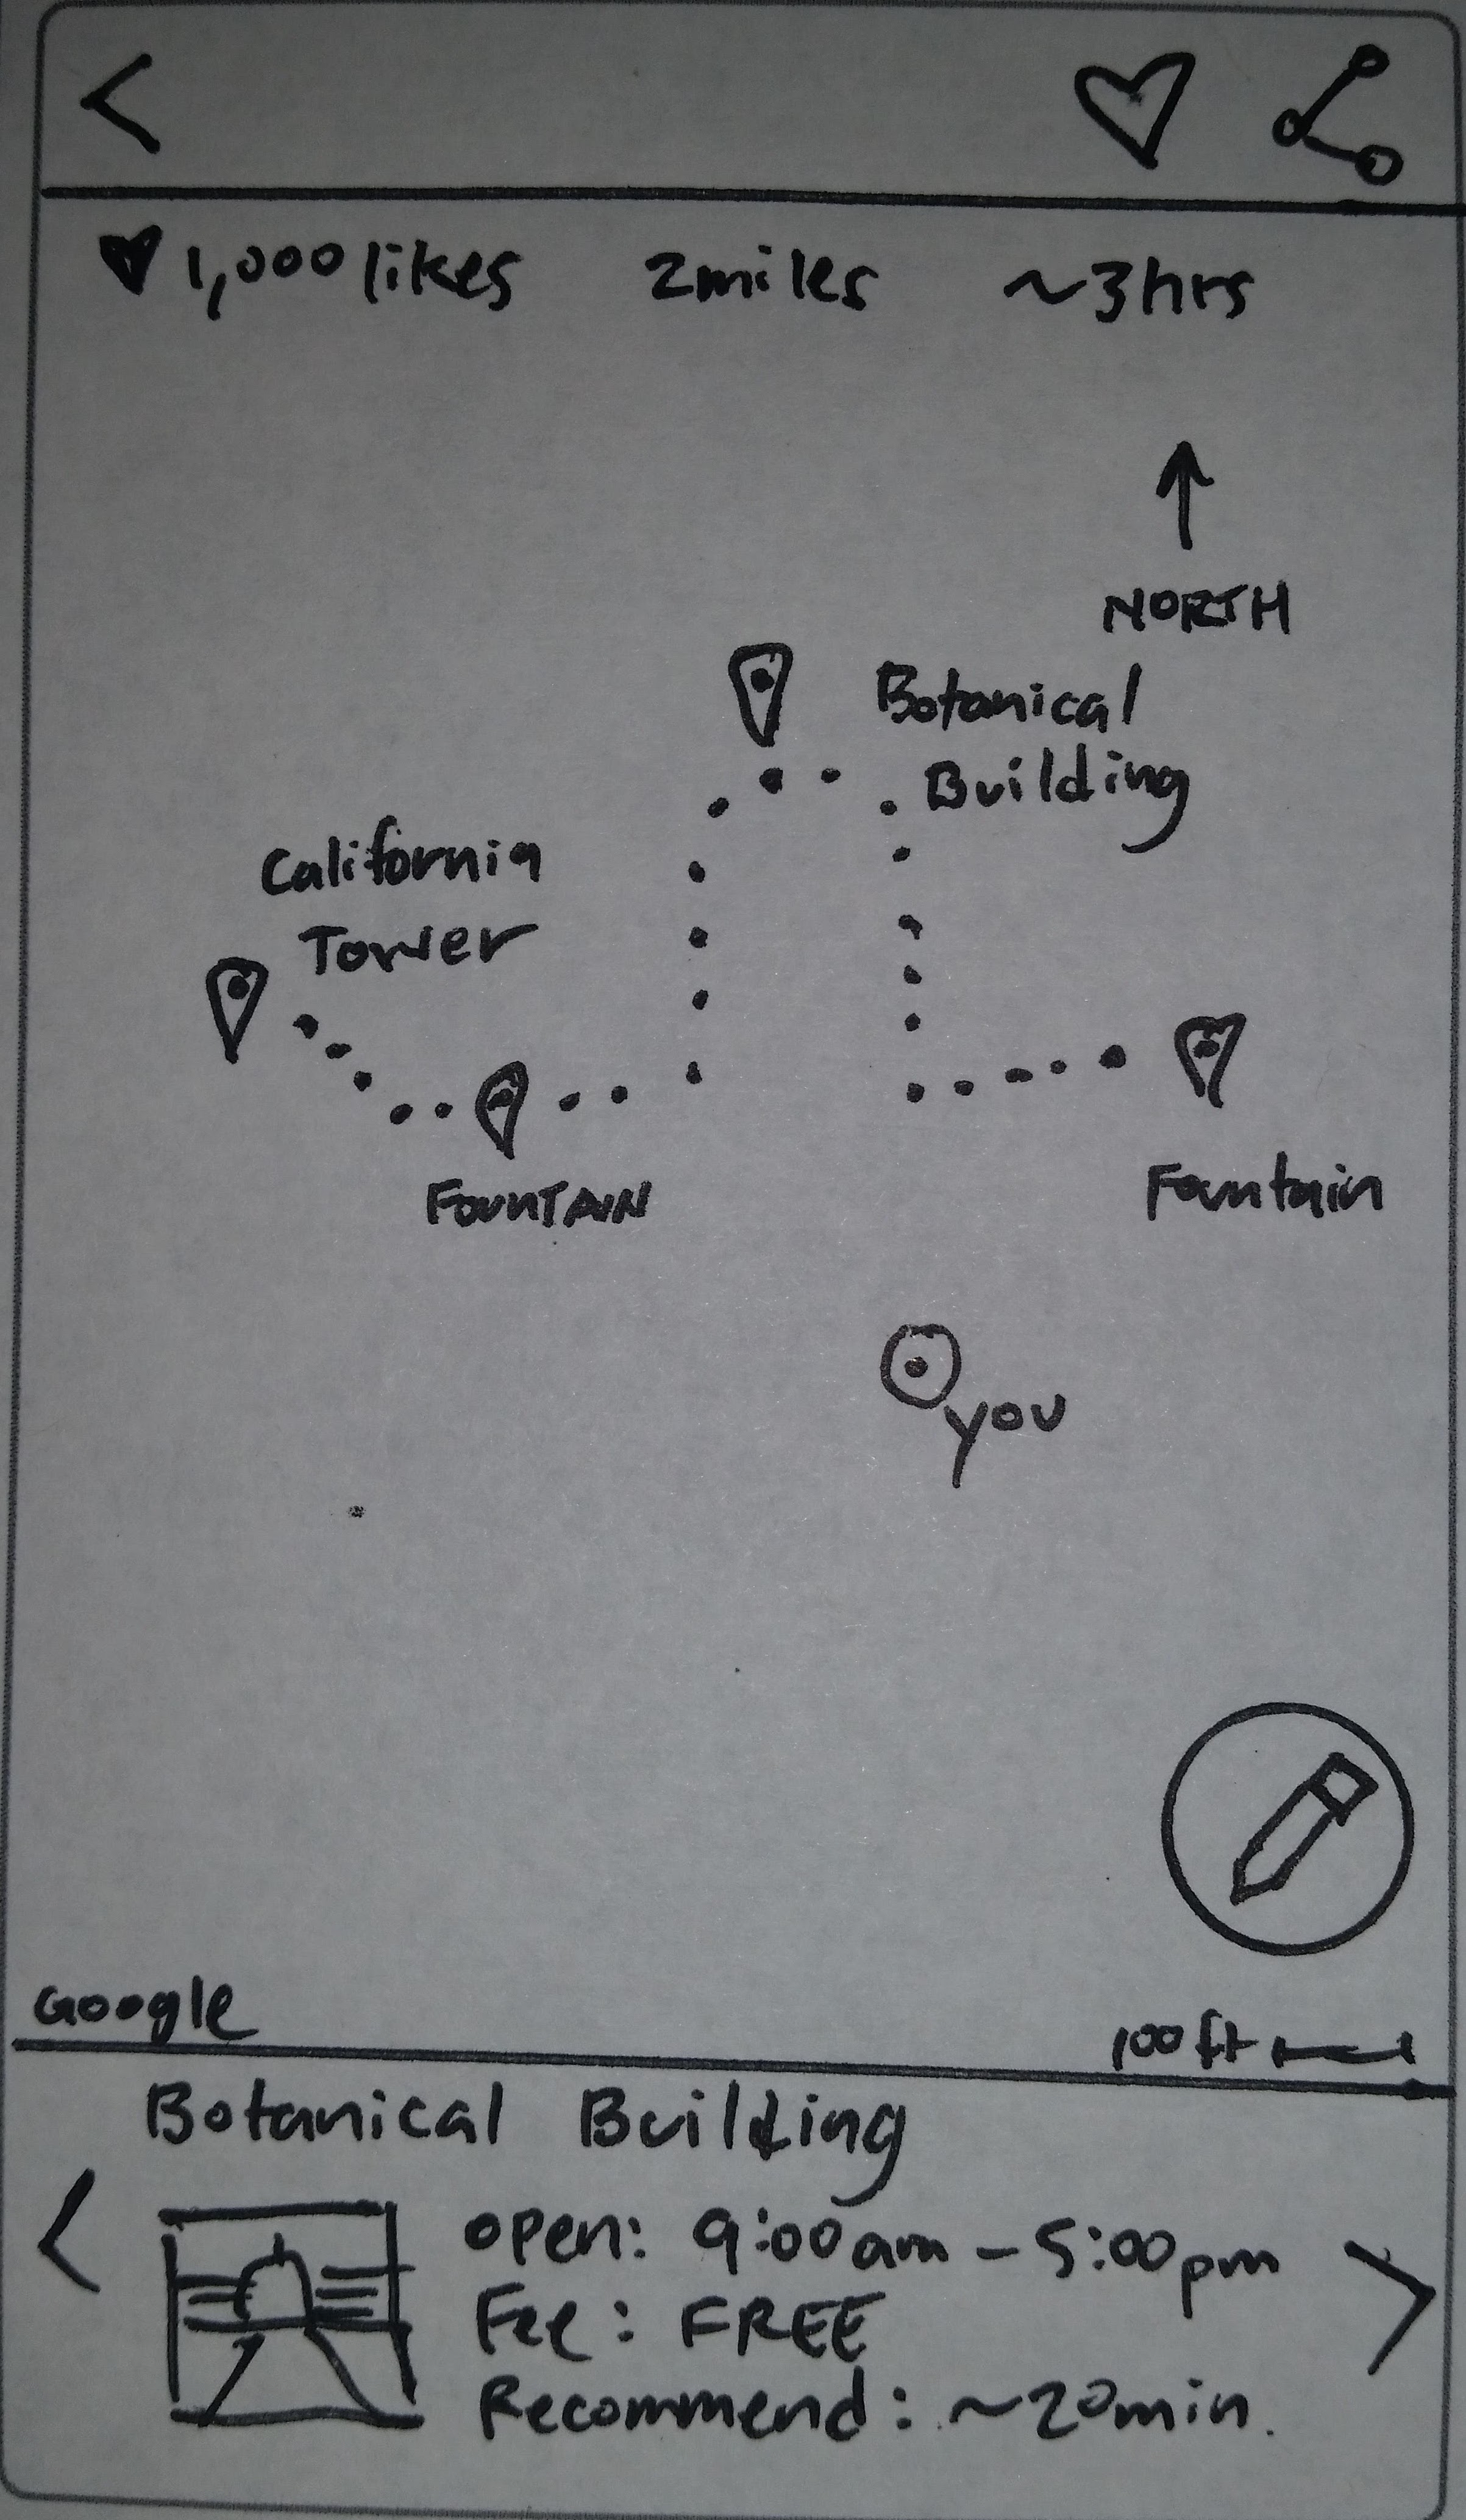 1,000 likes 2 miles ~3hrs
NORTH
Botanical
Building
California
Tower
FOUNTAIN
Fountain
you
Google
100 ft
Botanical Building
open: 9:00am - 5:00pm
Fee: FREE
Recommend: ~20min.